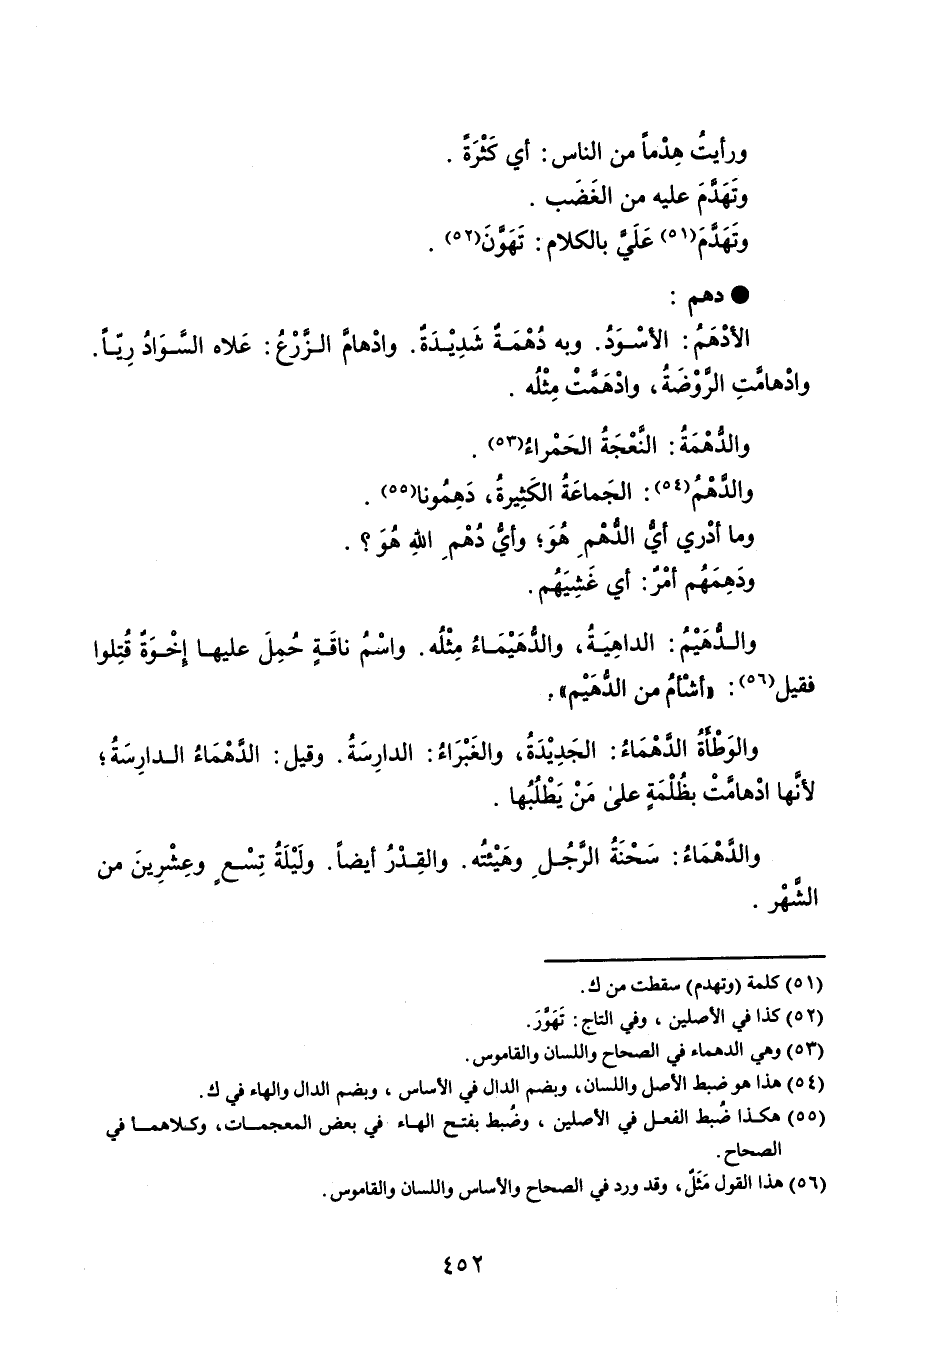 ورأيتُ هِدْماً من الناس: أي كَثْرَةً .
وتَهَدَّمَ عليه من الغَضَب .
وتَهَدَّمَ(٥١) عَلَيَّ بالكلام: تَهَوَّنَ(٥٢) .
● دهم :
الأدْهَمُ: الأسْوَدُ. وبه دُهْمَةٌ شَدِيْدَةٌ. وادْهامَّ الزَّرْعُ: عَلاه السَّوَادُ رِيّاً.
وادْهامَّتِ الرَّوْضَةُ، وادْهَمَّتْ مِثْلُه .
والدُّهْمَةُ: النَّعْجَةُ الحَمْراءُ(٥٣) .
والدَّهْمُ(٥٤): الجَماعَةُ الكَثِيرةُ، دَهِمُونا(٥٥) .
وما أدْري أيُّ الدُّهْمِ هُوَ؛ وأيُّ دُهْمِ اللهِ هُوَ؟ .
ودَهِمَهُم أمْرٌ: أي غَشِيَهُم.
والدُّهَيْمُ: الداهِيَةُ، والدُّهَيْمَاءُ مِثْلُه. واسْمُ ناقَةٍ حُمِلَ عليها إخْوَةٌ قُتِلوا
فقيل(٥٦): «أشْأمُ من الدُّهَيْم».
والوَطْأَةُ الدَّهْمَاءُ: الجَدِيْدَةُ، والغَبْرَاءُ: الدارِسَةُ. وقيل: الدَّهْمَاءُ الدارِسَةُ؛
لأنَّها ادْهامَّتْ بظُلْمَةٍ على مَنْ يَطْلُبُها .
والدَّهْمَاءُ: سَحْنَةُ الرَّجُلِ وهَيْئتُه. والقِدْرُ أيضاً. ولَيْلَةُ تِسْعٍ وعِشْرِينَ من
الشَّهْر .
(٥١) كلمة (وتهدم) سقطت من ك.
(٥٢) كذا في الأصلين ، وفي التاج: تَهَوَّرَ.
(٥٣) وهي الدهماء في الصحاح واللسان والقاموس.
(٥٤) هذا هو ضبط الأصل واللسان، وبضم الدال في الأساس ، وبضم الدال والهاء في ك.
(٥٥) هكذا ضُبط الفعل في الأصلين ، وضُبط بفتح الهاء في بعض المعجمات، وكلاهما في
الصحاح.
(٥٦) هذا القول مَثَلٌ، وقد ورد في الصحاح والأساس واللسان والقاموس.
٤٥٢